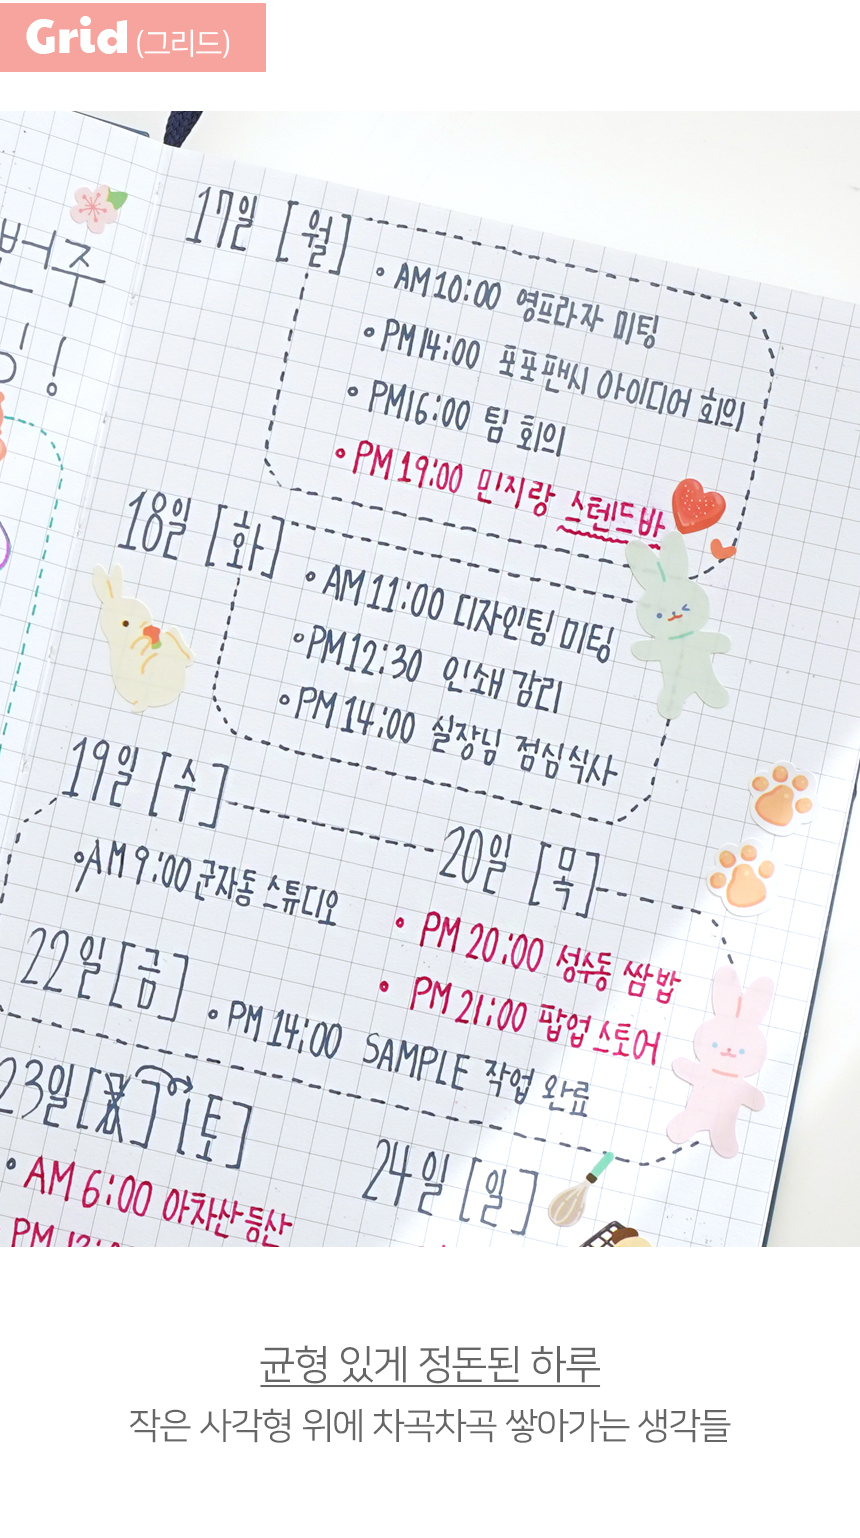 Grid (그리드)
번주
!
17일 [월]
• AM 10:00 영프라자 미팅
• PM 14:00 포포팬시 아이디어 회의
• PM 16:00 팀 회의
• PM 19:00 민지랑 스텐드바
18일 [화]
• AM 11:00 디자인팀 미팅
• PM 12:30 인쇄 감리
• PM 14:00 실장님 점심식사
19일 [수]
• AM 9:00 군자동 스튜디오
20일 [목]
• PM 20:00 성수동 쌈밥
• PM 21:00 팝업스토어
22일 [금]
• PM 14:00 SAMPLE 작업 완료
23일 [토]
• AM 6:00 아차산 등산
PM
24일 [일]
균형 있게 정돈된 하루
작은 사각형 위에 차곡차곡 쌓아가는 생각들